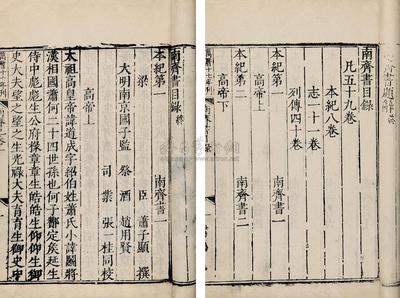 南齊書目錄
凡五十九卷
本紀八卷
志一十一卷
列傳四十卷
本紀第一 南齊書一
高帝上
本紀第二 南齊書二
高帝下
南齊書目錄終
本紀第一 南齊書一
梁 臣 蕭子顯 撰
大明南京國子監 祭酒 趙用賢
司業 張一桂 同校
高帝上
太祖高皇帝諱道成字紹伯姓蕭氏小諱鬭將
漢相國蕭何二十四世孫也何子酇定矦延生
侍中彪彪生公府掾章章生皓皓生仰仰生御
史大夫望之望之生光祿大夫育育生御史中